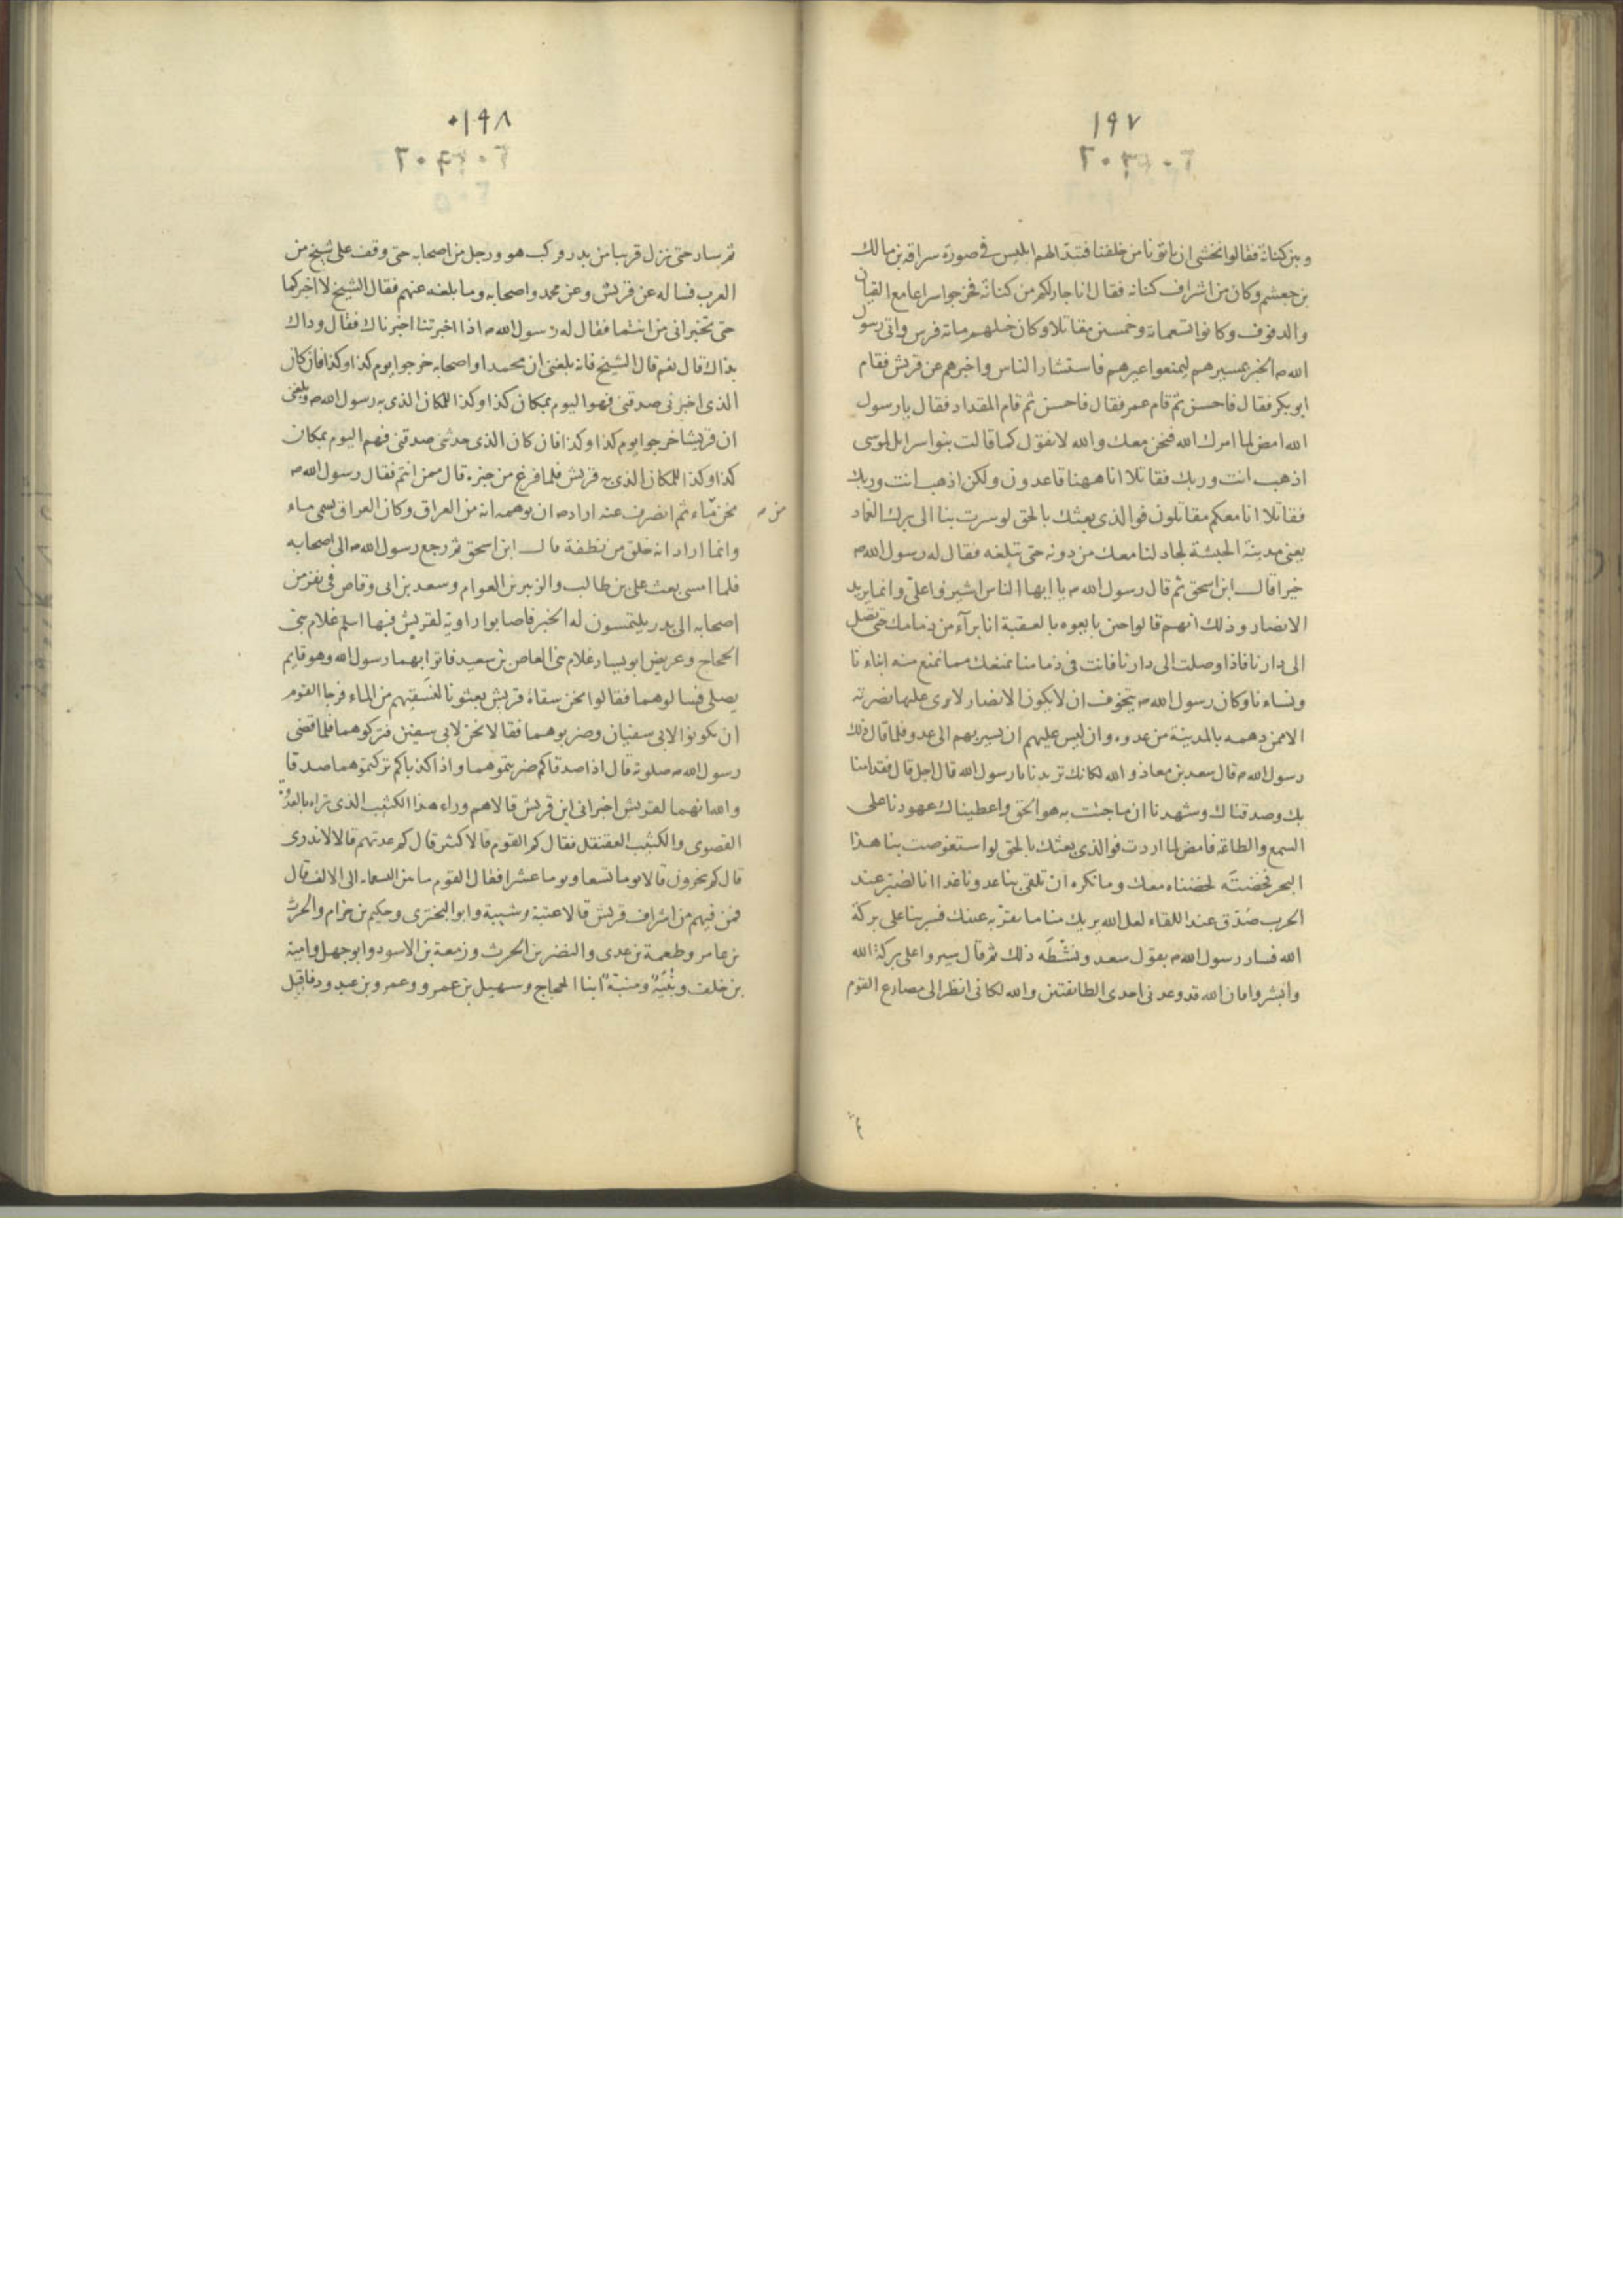 ١٩٧
٢٠٣
وبين كنانة فقالوا نخشى ان ياتونا من خلفنا فتبدا لهم ابليس في صورة سراقه بن مالك
بن جعشم وكان من اشراف كنانه فقال انا جار لكم من كنانة فخرجوا سراعا مع القيان
والدفوف وكانوا تسعماة وخمسين مقاتلا وكان خيلهم ماة فرس واتى رسول
الله م الخبر بمسيرهم ليمنعوا عيرهم فاستشار الناس واخبرهم عن قريش فقام
ابو بكر فقال فاحسن ثم قام عمر فقال فاحسن ثم قام المقداد فقال يا رسول
الله امض لما امرك الله فنحن معك والله لا نقول كما قالت بنوا سرايل لموسى
اذهب انت وربك فقاتلا انا ههنا قاعدون ولكن اذهب انت وربك
فقاتلا انا معكم مقاتلون فوالذي بعثك بالحق لو سرت بنا الى برك الغماد
يعني مدينة الحبشة لجادلنا معك من دونه حتى تبلغه فقال له رسول الله م
خيرا قال ابن اسحق ثم قال رسول الله م يا ايها الناس اشيروا على وانما يريد
الانصار وذلك انهم قالوا حين بايعوه بالعقبة انا برآء من ذمامك حتى تصل
الى دارنا فاذا وصلت الى دارنا فانت في ذمامنا نمنعك مما نمنع منه ابناءنا
ونساءنا وكان رسول الله م يتخوف ان لا يكون الانصار لا يرى عليها نصرته
الا ممن دهمه بالمدينة من عدوه وان ليس عليهم ان يسير بهم الى عدو فلما قال ذلك
رسول الله م قال سعد بن معاذ والله لكانك تريدنا يا رسول الله قال اجل قال فقد امنا
بك وصدقناك وشهدنا ان ما جئت به هو الحق واعطيناك عهودنا على
السمع والطاعة فامض لما اردت فوالذي بعثك بالحق لو استعرضت بنا هذا
البحر فخضته لخضناه معك وما نكره ان تلقى بنا عدونا غدا انا لصبر عند
الحرب صدق عند اللقاء لعل الله يريك منا ما تقر به عينك فسر بنا على بركة
الله فسار رسول الله م بقول سعد ونشطه ذلك ثم قال سيروا على بركة الله
وابشروا فان الله قد وعدني احدى الطائفتين والله لكاني انظر الى مصارع القوم
١٩٨
ثم سار حتى نزل قريبا من بدر وركب هو ورجل من اصحابه حتى وقف على شيخ من
العرب فساله عن قريش وعن محمد واصحابه وما بلغه عنهم فقال الشيخ لا اخبركما
حتى تخبراني من انتما فقال له رسول الله م اذا اخبرتنا اخبرناك فقال وذاك
بذاك قال نعم قال الشيخ فانه بلغني ان محمدا واصحابه خرجوا يوم كذا وكذا فان كان
الذي اخبرني صدقني فهو اليوم بمكان كذا وكذا للمكان الذي به رسول الله م وبلغني
ان قريشا خرجوا يوم كذا وكذا فان كان الذي حدثني صدقني فهم اليوم بمكان
كذا وكذا للمكان الذي به قريش فلما فرغ من خبره قال ممن انتم فقال رسول الله م
نحن من ماء ثم انصرف عنه اراد م ان يوهمه انه من العراق وكان العراق يسمى ماء
وانما اراد انه خلق من نطفة قال ابن اسحق ثم رجع رسول الله م الى اصحابه
فلما امسى بعث على بن طالب والزبير بن العوام وسعد بن ابي وقاص في نفر من
اصحابه الى بدر يلتمسون له الخبر فاصابوا راوية لقريش فيها اسلم غلام بني
الحجاج وعريض ابو يسار غلام بني العاص بن سعيد فاتوا بهما رسول الله وهو قايم
يصلي فسالوهما فقالوا نحن سقاة قريش بعثونا لنسقيهم من الماء فرجا القوم
ان يكونوا لابي سفيان وضربوهما فقالا نحن لابي سفين فتركوهما فلما قضى
رسول الله م صلوته قال اذا صدقاكم ضربتموهما واذا كذباكم تركتموهما صدقا
والله انهما لقريش اخبراني اين قريش قالا هم وراء هذا الكثيب الذي تراه بالعدوة
القصوى والكثيب العقنقل فقال كم القوم قالا كثير قال كم عدتهم قالا لا ندري
قال كم ينحرون قالا يوما تسعا ويوما عشرا فقال القوم ما بين التسعماية الى الالف قال
فمن فيهم من اشراف قريش قالا عتبة وشيبة وابو البختري وحكيم بن حزام والحرث
بن عامر وطعمة بن عدي والنضر بن الحرث وزمعة بن الاسود وابو جهل وامية
بن خلف ونبيه ومنبه ابنا الحجاج وسهيل بن عمرو وعمرو بن عبد ود فاقبل